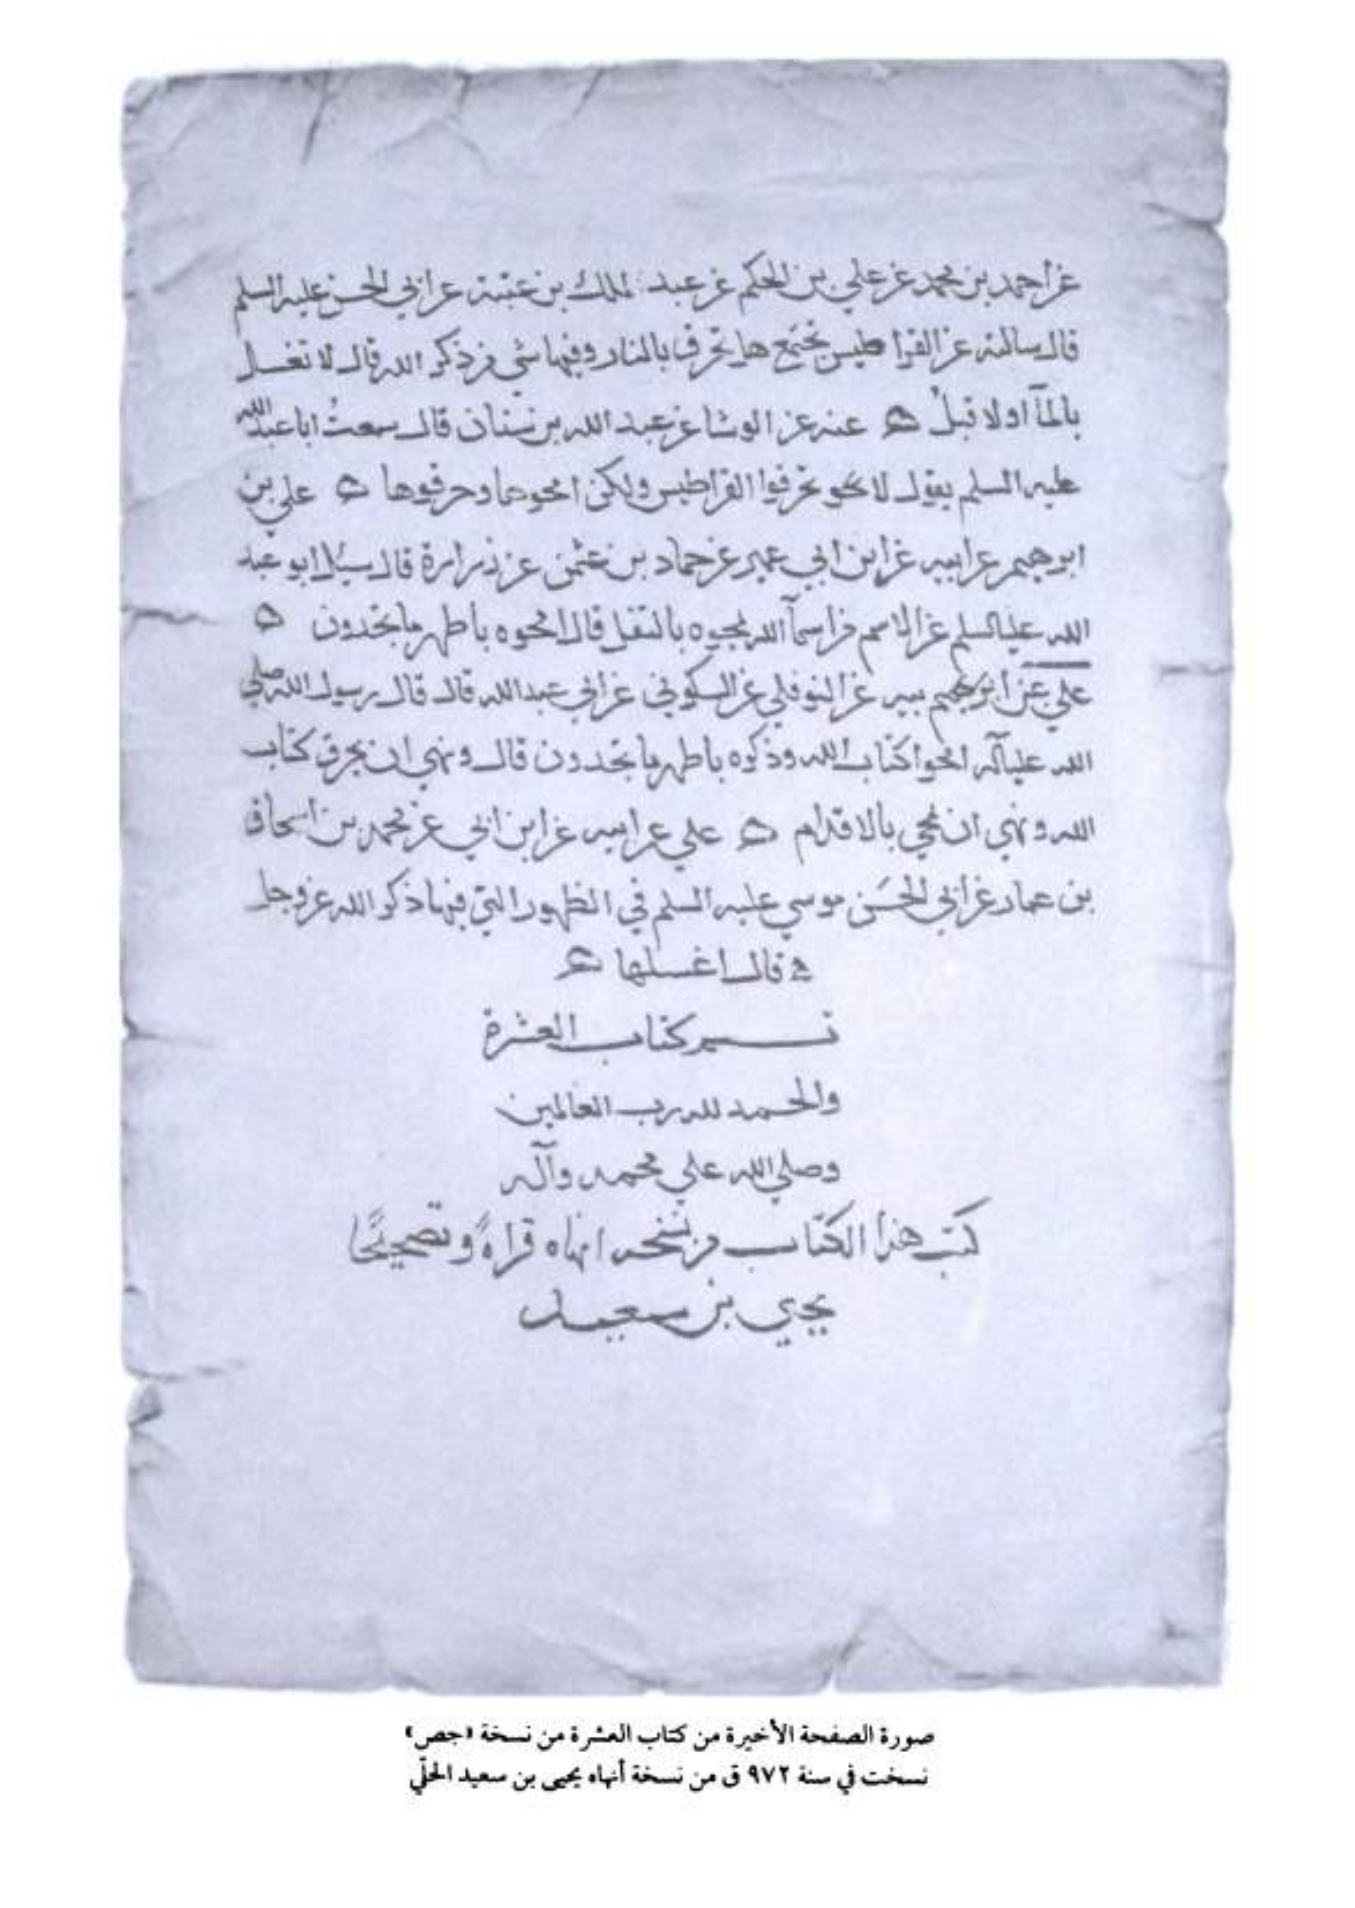 عن احمد بن محمد عن علي بن الحكم عن عبد الملك بن عتبة عن ابي الحسن عليه السلم
قال سالته عن القراطيس تجتمع هل تحرق بالنار وفيها شي من ذكر الله قال لا تغسل
بالمآ اولا قبلُ ه عنه عن الوشا عن عبد الله بن سنان قال سمعتُ ابا عبد الله
عليه السلم يقول لا تحرقوا القراطيس ولكن امحوها وحرقوها ه علي بن
ابرهيم عن ابيه عن ابن ابي عمير عن حماد بن عثمن عن زرارة قال سئل ابو عبد
الله عليه السلم عن الاسم من اسمآ الله يمحوه بالتفل قال امحوه باطهر ما تجدون ه
علي عن ابرهيم بيه عن النوفلي عن السكوني عن ابي عبد الله قال قال رسول الله صلي
الله عليه آله امحوا كتاب الله وذكره باطهر ما تجدون قال ونهي ان يحرق كتاب
الله ونهي ان يمحي بالاقدام ه علي عن ابيه عن ابن ابي عن محمد بن اسحاق
بن عمار عن ابي الحسَن موسي عليه السلم في الظهور التي فيها ذكر الله عز وجل
ه قال اغسلها ه
كتاب العشرة
والحمد لله رب العالمين
وصلي الله علي محمد وآله
كتب هذا الكتاب من نسخه انهاه قراةً وتصحيحًا
يحيي بن سعيد
صورة الصفحة الأخيرة من كتاب العشرة من نسخة «جص»
نسخت في سنة ٩٧٢ ق من نسخة أنهاه يحيى بن سعيد الحلّي